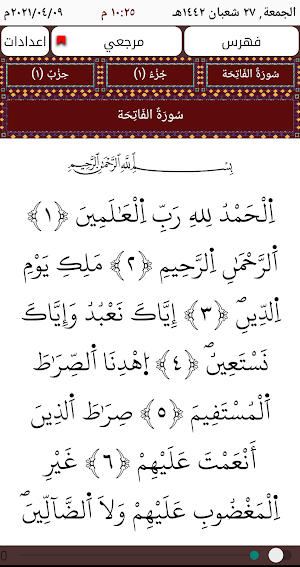 الجمعة, ٢٧ شعبان ١٤٤٢هـ ١٠:٢٥ م ٢٠٢١/٠٤/٠٩م
فهرس مرجعي إعدادات
سُورَةُ الفَاتِحَة جُزْءُ (١) حِزْبُ (١)
سُورَةُ الفَاتِحَة
بِسْمِ اِللَّهِ اِلرَّحْمَٰنِ اِلرَّحِيمِ
اِلْحَمْدُ لِلهِ رَبِّ اِلْعَٰلَمِينَ ﴿١﴾
اَلرَّحْمَٰنِ اِلرَّحِيمِ ﴿٢﴾ مَلِكِ يَوْمِ
اِلدِّينِۖ ﴿٣﴾ إِيَّاكَ نَعْبُدُ وَإِيَّاكَ
نَسْتَعِينُۖ ﴿٤﴾ اِهْدِنَا اَلصِّرَٰطَ
اَلْمُسْتَقِيمَ ﴿٥﴾ صِرَٰطَ اَلذِينَ
أَنْعَمْتَ عَلَيْهِمْ ﴿٦﴾ غَيْرِ
اِلْمَغْضُوبِ عَلَيْهِمْ وَلَا اَلضَّآلِّينَۖ
0